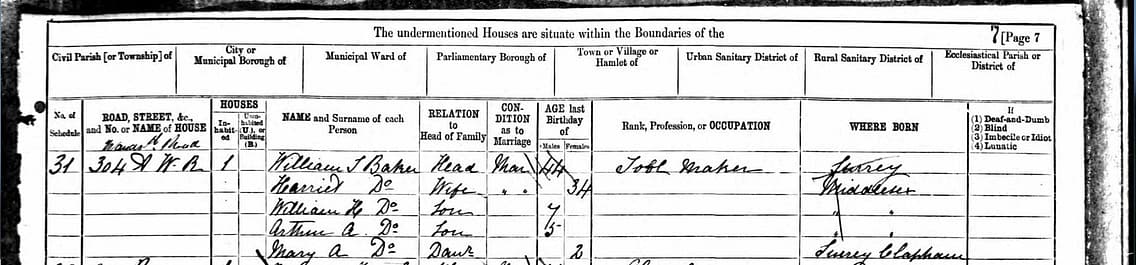 The undermentioned Houses are situate within the Boundaries of the
7 [Page 7
Civil Parish [or Township] of
City or Municipal Borough of
Municipal Ward of
Parliamentary Borough of
Town or Village or Hamlet of
Urban Sanitary District of
Rural Sanitary District of
Ecclesiastical Parish or District of
No. of Schedule
ROAD, STREET, &c., and No. or NAME of HOUSE
HOUSES
Inhabited
Uninhabited (U.), or Building (B.)
NAME and Surname of each Person
RELATION to Head of Family
CONDITION as to Marriage
AGE last Birthday of
Males
Females
Rank, Profession, or OCCUPATION
WHERE BORN
If
(1) Deaf-and-Dumb
(2) Blind
(3) Imbecile or Idiot
(4) Lunatic
Road
31 304 A W. R 1 William T Baker Head Mar 44 Tool Maker Surrey
Harriet Do Wife " " 34 Middlesex
William H Do Son 7 " "
Arthur A. Do Son 5 " "
Mary A Do Daur 2 Surrey Clapham